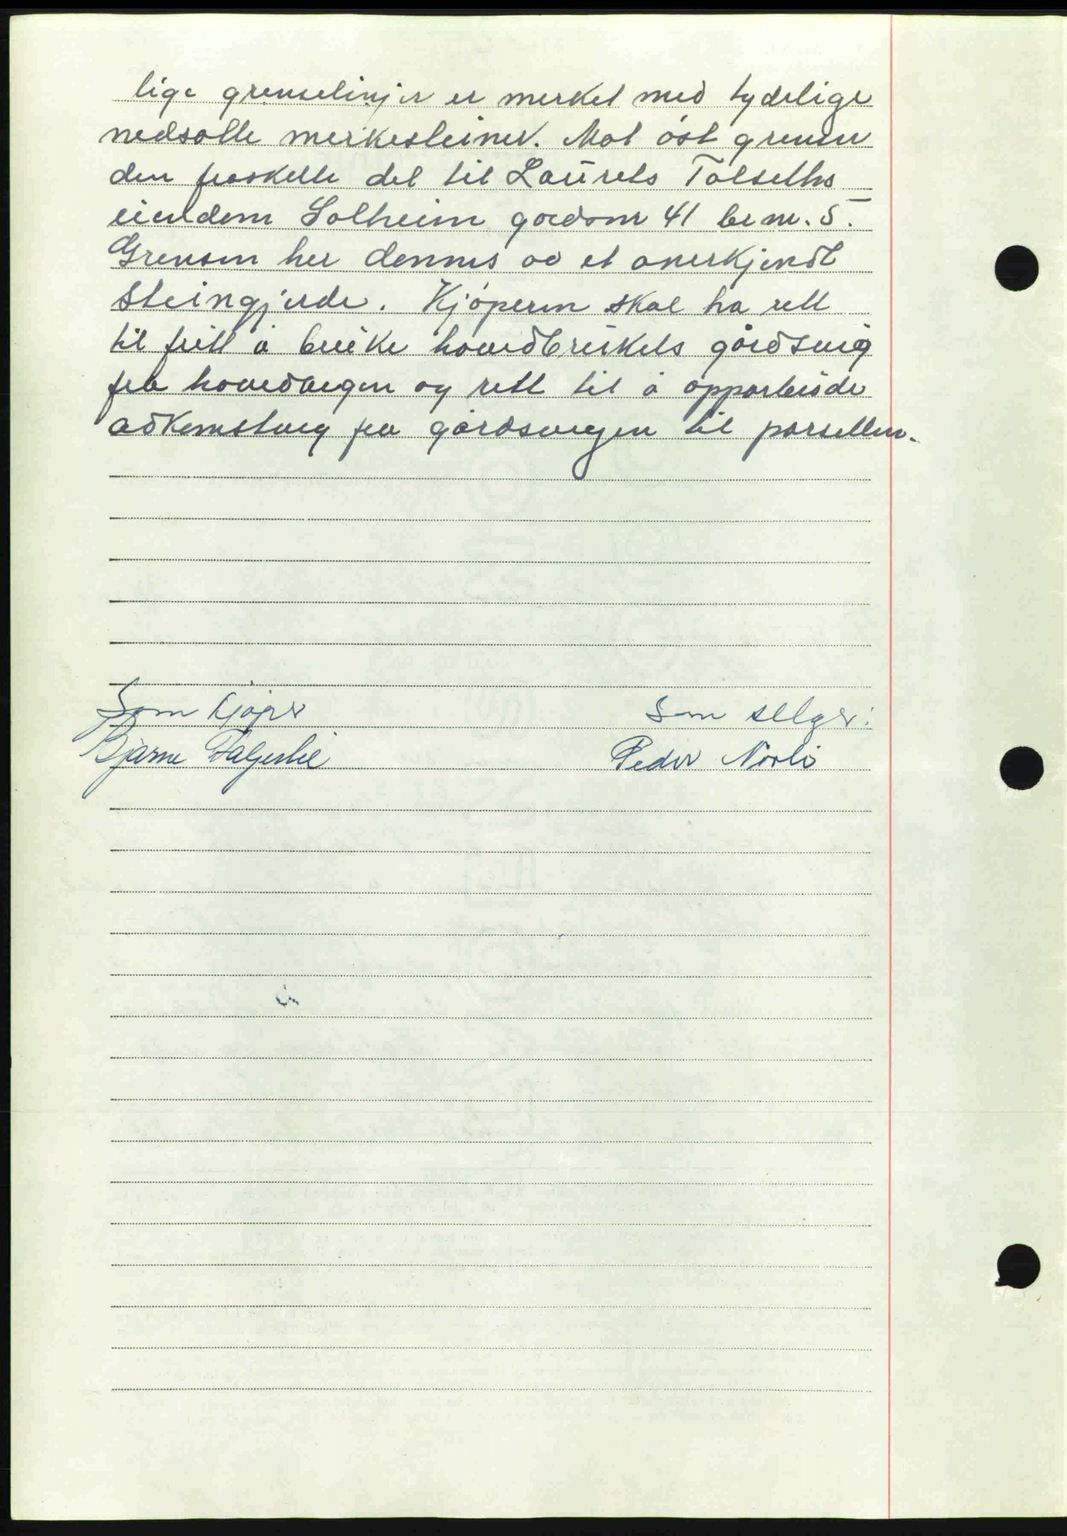 lige grenselinjer er merket med tydelige
nedsatte merkesteiner. Mot öst grenser
den fraskilte del til Laurets Talseths
eiendom Solheim gårdsnr 41 br.nr. 5.
Grensen her dannes av et anerkjendt
Steingjerde. Kjöperen skal ha rett
til fritt å bruke hovedbrukets gårdsveig
fra hovedveigen og rett til å opparbeide
adkomstveig fra gårdsveigen til parsellen.
Som kjøper
Som selger:
Bjarne
Peder Norli